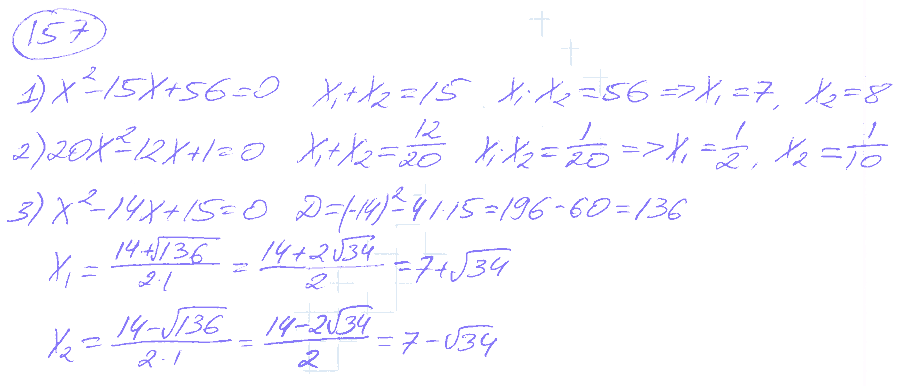 157
1) x²-15x+56=0 x₁+x₂=15 x₁·x₂=56=>x₁=7, x₂=8
2) 20x²-12x+1=0 x₁+x₂=12/20 x₁·x₂=1/20=>x₁=1/2, x₂=1/10
3) x²-14x+15=0 D=(-14)²-4·1·15=196-60=136
x₁=(14+√136)/(2·1)=(14+2√34)/2=7+√34
x₂=(14-√136)/(2·1)=(14-2√34)/2=7-√34